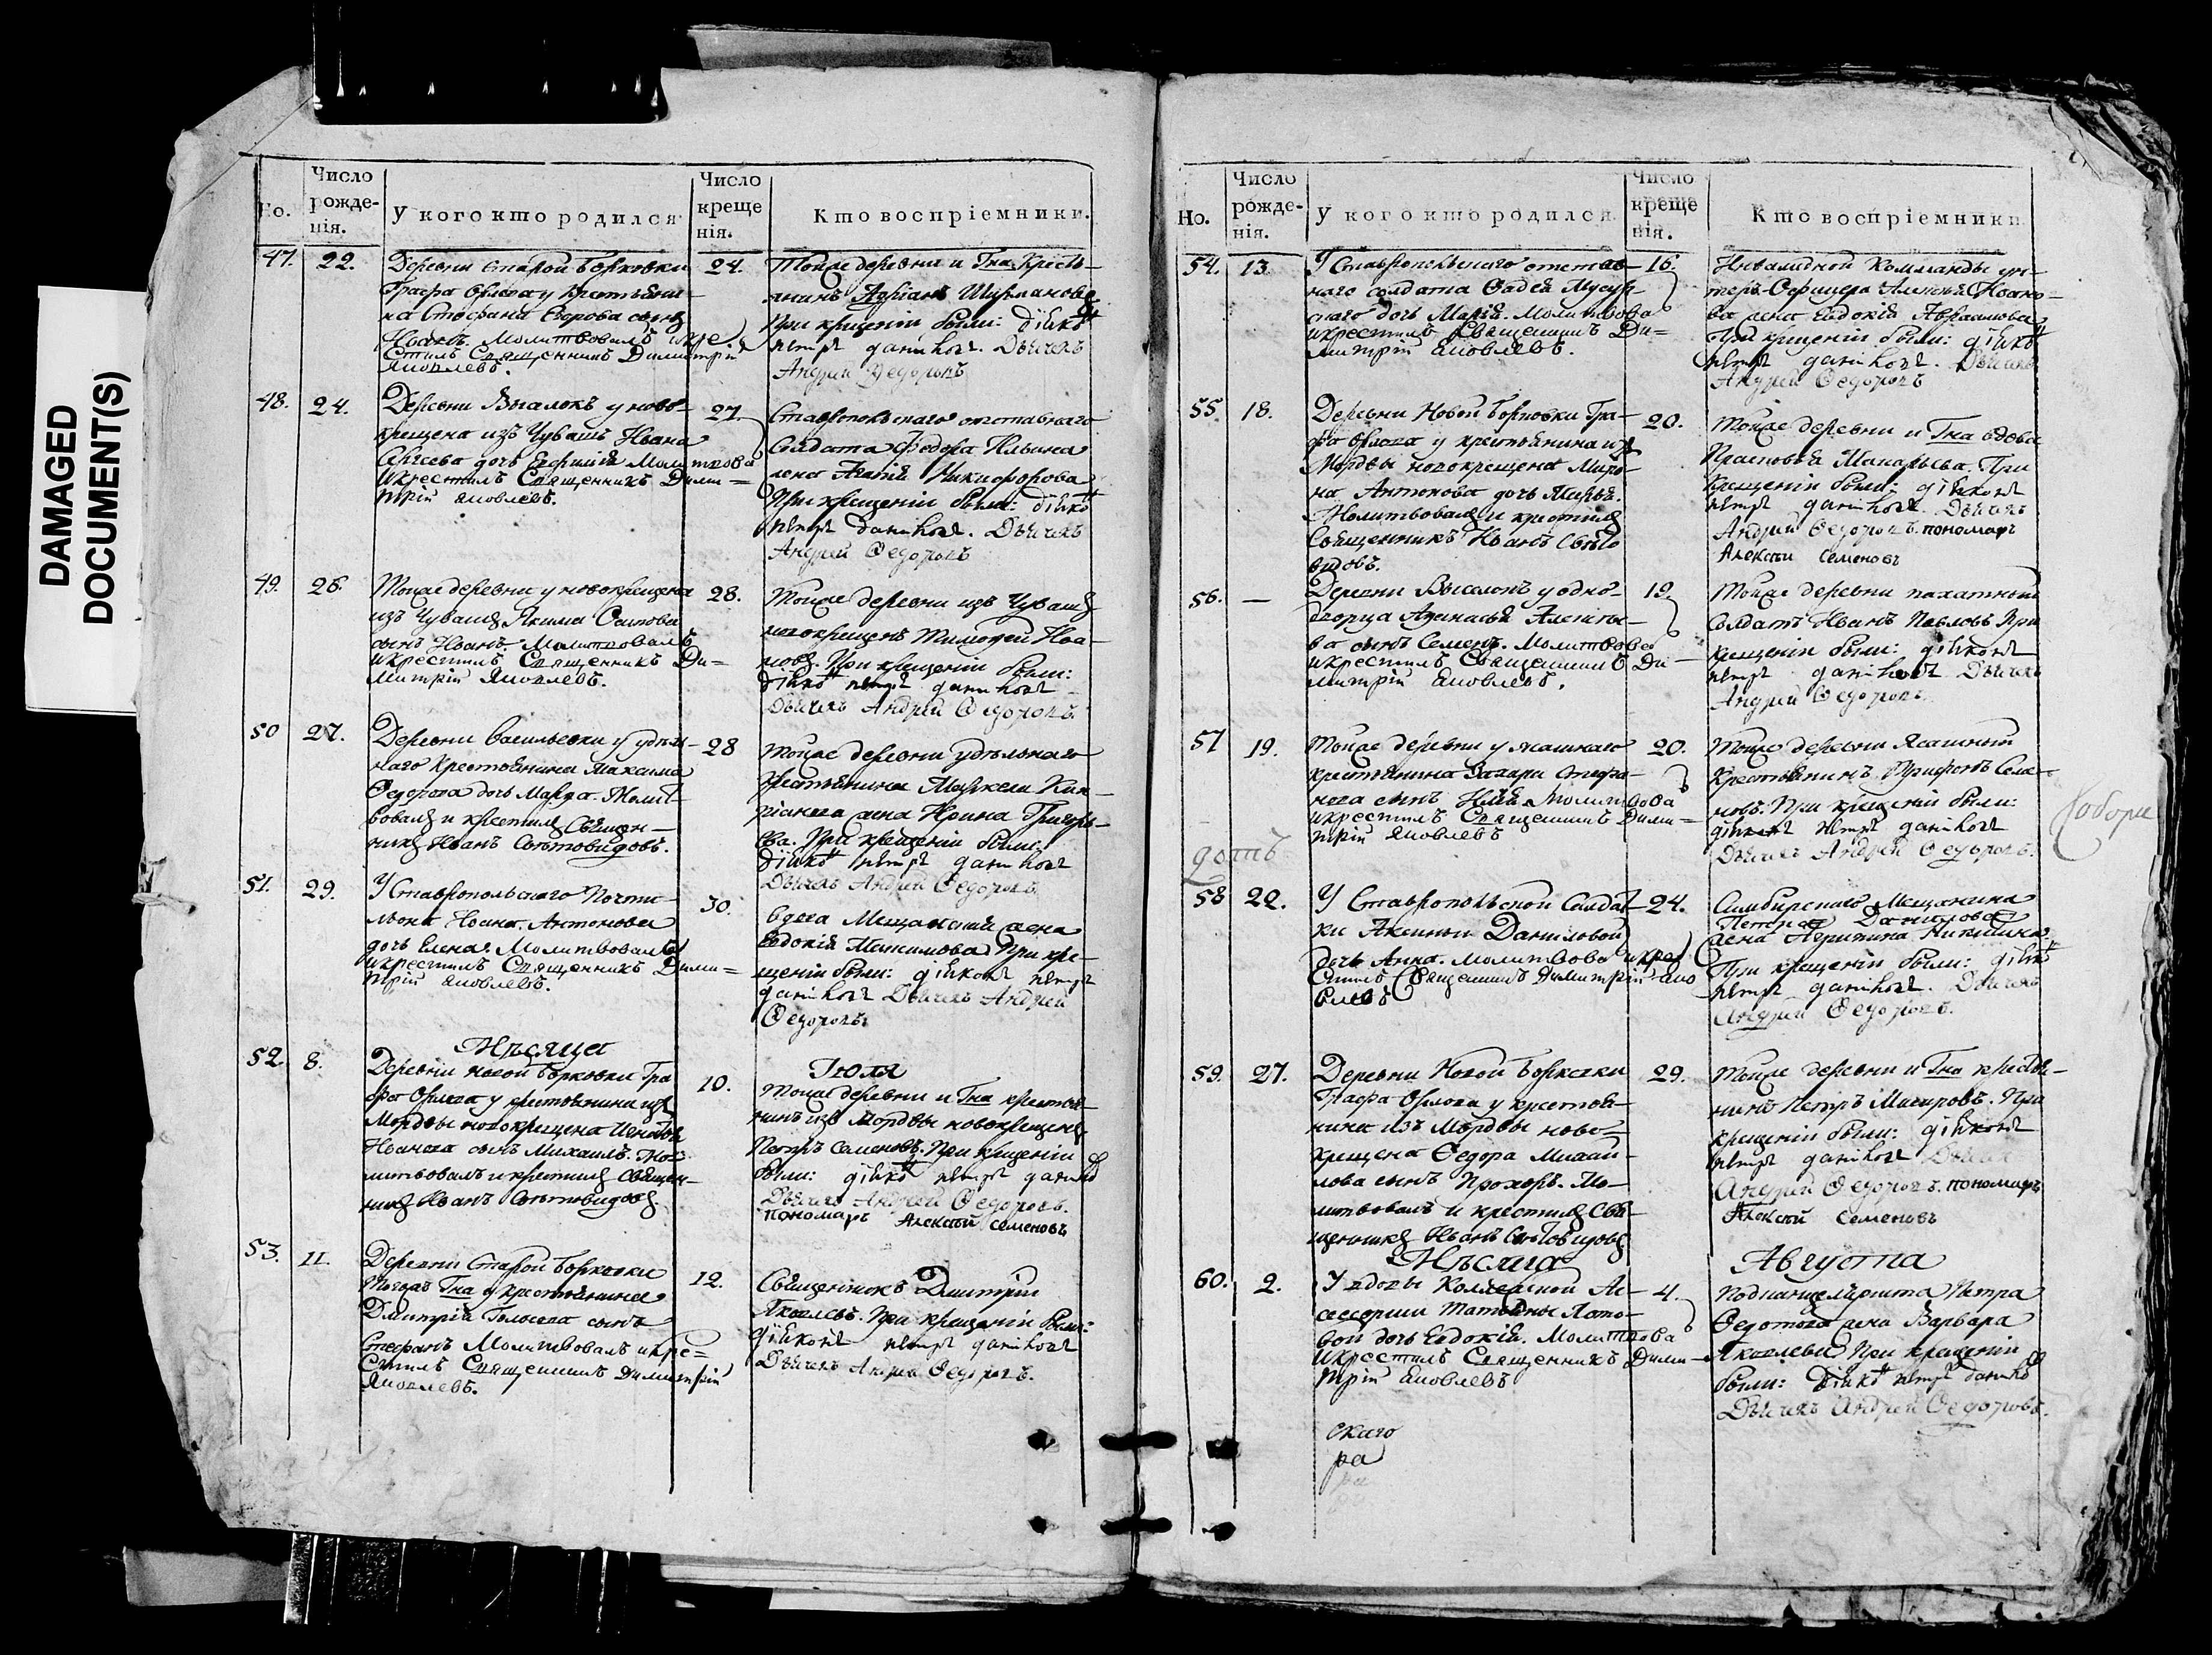 DAMAGED
DOCUMENT(S)
No.
Число рожденія.
У кого кто родился
Число крещенія.
Кто воспріемники.
47. 22.
Деревни Старой Борковки
Графа Орлова у крестьяни-
на Стефана Егорова сынъ
Иванъ. Молитвовалъ и кре-
стилъ Священникъ Димитрій
Яковлевъ.
24.
Тойже деревни и Гна Кресть-
янинъ Адріанъ
При крещеніи были: діяко
петръ
Дьячекъ
Андрей Федоровъ
48. 24.
Деревни Выселокъ у ново-
крещена изъ Чувашъ Ивана
дочь Молитвова
и крестилъ Священникъ Дими=
трій Яковлевъ.
27.
Ставропольскаго отставнаго
Солдата Федора Ильина
жена Никифорова
При крещеніи были: діяко
петръ Дьячекъ
Андрей Федоровъ
49. 26.
Тойже деревни у новокрещена
изъ Чувашъ Якима Осипова
сынъ Иванъ. Молитвовалъ
и крестилъ Священникъ Ди=
митрій Яковлевъ.
28.
Тойже деревни изъ Чувашъ
новокрещенъ Тимофей Ива-
новъ. При крещеніи были:
діяко петръ
Дьячекъ Андрей Федоровъ.
50 27.
Деревни Васильевки у удѣль-
наго Крестьянина Максима
Федорова дочь Марфа. Молит-
вовалъ и крестилъ Священ-
никъ Иванъ Свѣтовидовъ.
28
Тойже деревни удѣльнаго
Крестьянина Маркела Кип-
ріанова жена Ирина Григорь-
ева. При крещеніи были:
діяко петръ
Дьячекъ Андрей Федоровъ
51. 29.
У Ставропольскаго Почти-
ліона Ивана Антонова
дочь Елена. Молитвовалъ
и крестилъ Священникъ Дими=
трій Яковлевъ.
30.
Вдова Мещанская жена
Евдокія Максимова При кре-
щеніи были: діяконъ петръ
Дьячекъ Андрей
Федоровъ
Мѣсяца
Іюля
52. 8.
Деревни Новой Борковки Гра
фа Орлова у крестьянина изъ
Мордвы новокрещена Игнатья
Иванова сынъ Михаилъ. Мо-
литвовалъ и крестилъ Священ-
никъ Иванъ Свѣтовидовъ
10.
Тойже деревни и Гна крестья-
нинъ изъ Мордвы новокрещенъ
Петръ Семеновъ. При крещеніи
были: діяко петръ
Дьячекъ Андрей Федоровъ.
пономарь Алексѣй Семеновъ
53. 11.
Деревни Старой Борковки
тогожъ Гна у крестьянина
Дмитрія сынъ
Стефанъ Молитвовалъ и кре=
стилъ Священникъ Димитрій
Яковлевъ.
12.
Священникъ Дмитрій
Яковлевъ. При крещеніи были:
діяконъ петръ
Дьячекъ Андрей Федоровъ.
No.
Число рожденія.
У кого кто родился.
Число крещенія.
Кто воспріемники
54. 13
У Ставропольскаго отстав-
наго солдата Фадея
дочь Марія. Молитвова
и крестилъ Священникъ Ди=
митрій Яковлевъ.
16.
Инвалидной Комманды ун-
теръ-Офицера Алексѣя Ивано-
ва жена Евдокія Авраамова
При крещеніи были: діяко
петръ Дьячекъ
Андрей Федоровъ
55. 18.
Деревни Новой Борковки Гра-
фа Орлова у крестьянина изъ
Мордвы новокрещена Миро-
на Антонова дочь Марья.
Молитвовалъ и крестилъ
Священникъ Иванъ Свѣто
видовъ.
20.
Тойже деревни и Гна вдова
Прасковья Макарьева. При
крещеніи были: діяконъ
петръ Дьячекъ
Андрей Федоровъ. пономарь
Алексѣй Семеновъ
56. —
Деревни Выселокъ у одно-
дворца Афанасья Алексѣе-
ва сынъ Семенъ. Молитвова
и крестилъ Священникъ Ди-
митрій Яковлевъ.
19.
Тойже деревни пахатный
Солдатъ Иванъ Павловъ При
крещеніи были: діяконъ
петръ Дьячекъ
Андрей Федоровъ.
57 19.
Тойже деревни у ясашнаго
крестьянина Захара Стефа-
нова сынъ Илія. Молитвова
и крестилъ Священникъ Дими=
трій Яковлевъ
20.
Тойже деревни Ясашный
Крестьянинъ Трифонъ Селе-
новъ. При крещеніи были:
діяконъ петръ
Дьячекъ Андрей Федоровъ.
58 22.
У Ставропольской Солдат-
ки Аксиньи Даниловой
дочь Анна. Молитвова и кре
стилъ Священникъ Димитрій Яко
влевъ
24.
Симбирскаго Мещанина
Петра Данилова
жена Агрипина Никитина.
При крещеніи были: діяко
петръ Дьячекъ
Андрей Федоровъ.
59. 27.
Деревни Новой Борковки
Графа Орлова у крестья-
нина изъ Мордвы ново-
крещена Федора Михай-
лова сынъ Прохоръ. Мо-
литвовалъ и крестилъ Свя-
щенникъ Иванъ Свѣтовидовъ
29.
Тойже деревни и Гна крестья-
нинъ Петръ При
крещеніи были: діяконъ
петръ Дьячекъ
Андрей Федоровъ. пономарь
Алексѣй Семеновъ
Мѣсяца
Августа
60. 2.
У вдовы Коллежской Ас-
сессорши Татьяны
вой дочь Евдокія. Молитвова
и крестилъ Священникъ Дими-
трій Яковлевъ
4.
Подканцеляриста Петра
Федотова жена Варвара
Яковлева При крещеніи
были: Діяко петръ
Дьячекъ Андрей Федоровъ.
скаго
ра
Собора